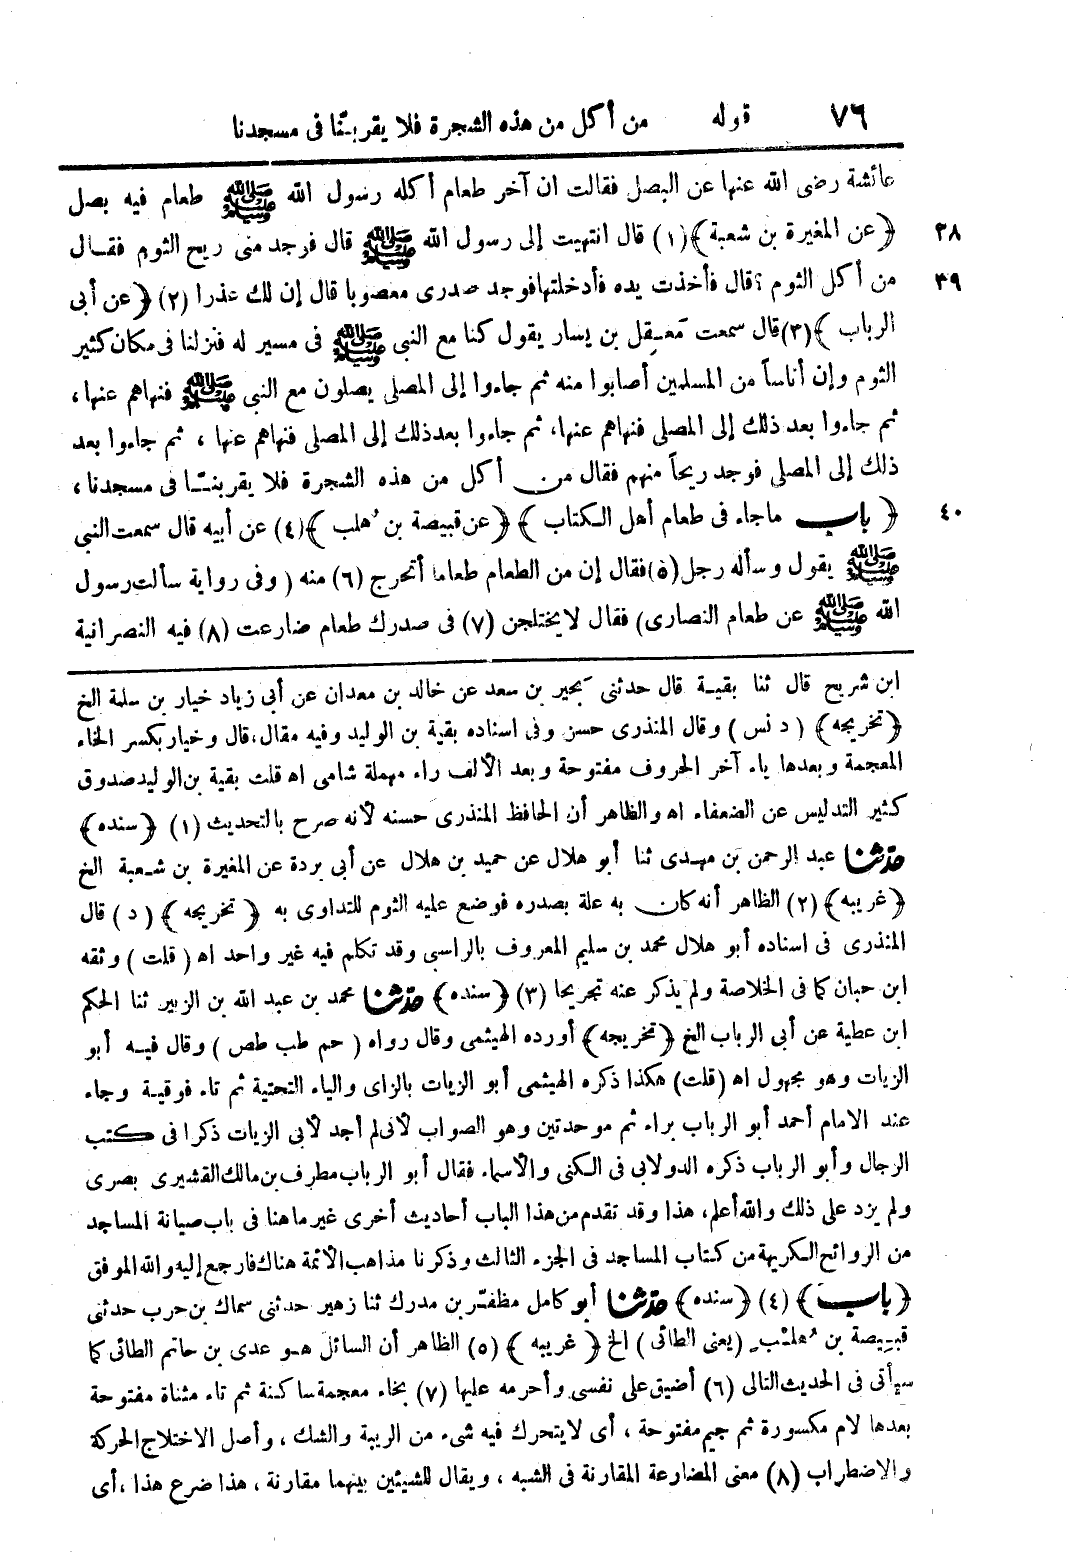 ٧٦ قوله من أكل من هذه الشجرة فلا يقربنّا فى مسجدنا
عائشة رضى الله عنها عن البصل فقالت ان آخر طعام أكله رسول الله ﷺ طعام فيه بصل
٣٨ ﴿عن المغيرة بن شعبة﴾ (١) قال انتهيت إلى رسول الله ﷺ قال فوجد منى ريح الثوم فقال
٣٩ من أكل الثوم ؟ قال فأخذت يده فأدخلتها فوجد صدرى معصوبا قال إن لك عذرا (٢) ﴿عن أبى
الرباب﴾ (٣) قال سمعت مَعقِل بن يسار يقول كنا مع النبى ﷺ فى مسير له فنزلنا فى مكان كثير
الثوم وإن أناساً من المسلمين أصابوا منه ثم جاءوا إلى المصلى يصلون مع النبى ﷺ فنهاهم عنها،
ثم جاءوا بعد ذلك إلى المصلى فنهاهم عنها، ثم جاءوا بعد ذلك إلى المصلى فنهاهم عنها ، ثم جاءوا بعد
ذلك إلى المصلى فوجد ريحاً منهم فقال من أكل من هذه الشجرة فلا يقربنّا فى مسجدنا،
٤٠ ﴿باب ماجاء فى طعام أهل الكتاب﴾ ﴿عن قبيصة بن هلب﴾ (٤) عن أبيه قال سمعت النبى
ﷺ يقول وسأله رجل (٥) فقال إن من الطعام طعاما أتحرج (٦) منه ( وفى رواية سألت رسول
الله ﷺ عن طعام النصارى) فقال لا يختلجن (٧) فى صدرك طعام ضارعت (٨) فيه النصرانية
ابن شريح قال ثنا بقية قال حدثنى بَحير بن سعد عن خالد بن معدان عن أبى زياد خيار بن سلمة الخ
﴿تخريجه﴾ ( د نس ) وقال المنذرى حسن وفى اسناده بقية بن الوليد وفيه مقال، قال وخيار بكسر الخاء
المعجمة وبعدها ياء آخر الحروف مفتوحة وبعد الألف راء مهملة شامى اه قلت بقية بن الوليد صدوق
كثير التدليس عن الضعفاء اه والظاهر أن الحافظ المنذرى حسنه لأنه صرح بالتحديث (١) ﴿سنده﴾
حدّثنا عبد الرحمن بن مهدى ثنا أبو هلال عن حميد بن هلال عن أبى بردة عن المغيرة بن شعبة الخ
﴿غريبه﴾ (٢) الظاهر أنه كان به علة بصدره فوضع عليه الثوم للتداوى به ﴿تخريجه﴾ ( د ) قال
المنذرى فى اسناده أبو هلال محمد بن سليم المعروف بالراسبى وقد تكلم فيه غير واحد اه ( قلت ) وثقه
ابن حبان كما فى الخلاصة ولم يذكر عنه تجريحا (٣) ﴿سنده﴾ حدّثنا محمد بن عبد الله بن الزبير ثنا الحكم
ابن عطية عن أبى الرباب الخ ﴿تخريجه﴾ أورده الهيثمى وقال رواه ( حم طب طص ) وقال فيه أبو
الزيات وهو مجهول اه (قلت) هكذا ذكره الهيثمى أبو الزيات بالزاى والياء التحتية ثم تاء فوقية وجاء
عند الامام أحمد أبو الرباب براء ثم موحدتين وهو الصواب لأنى لم أجد لأبى الزيات ذكرا فى كتب
الرجال وأبو الرباب ذكره الدولابى فى الكنى والأسماء فقال أبو الرباب مطرف بن مالك القشيرى بصرى
ولم يزد على ذلك والله أعلم، هذا وقد تقدم من هذا الباب أحاديث أخرى غير ما هنا فى باب صيانة المساجد
من الروائح الكريهة من كتاب المساجد فى الجزء الثالث وذكرنا مذاهب الأئمة هناك فارجع إليه والله الموفق
﴿باب﴾ (٤) ﴿سنده﴾ حدّثنا أبو كامل مظفر بن مدرك ثنا زهير حدثنى سماك بن حرب حدثنى
قبيصة بن هلب (يعنى الطائى) الخ ﴿غريبه﴾ (٥) الظاهر أن السائل هو عدى بن حاتم الطائى كما
سيأتى فى الحديث التالى (٦) أضيق على نفسى وأحرمه عليها (٧) بخاء معجمة ساكنة ثم تاء مثناة مفتوحة
بعدها لام مكسورة ثم جيم مفتوحة ، أى لا يتحرك فيه شىء من الريبة والشك ، وأصل الاختلاج الحركة
والاضطراب (٨) معنى المضارعة المقارنة فى الشبه ، ويقال للشيئين بينهما مقارنة ، هذا ضرع هذا ، أى